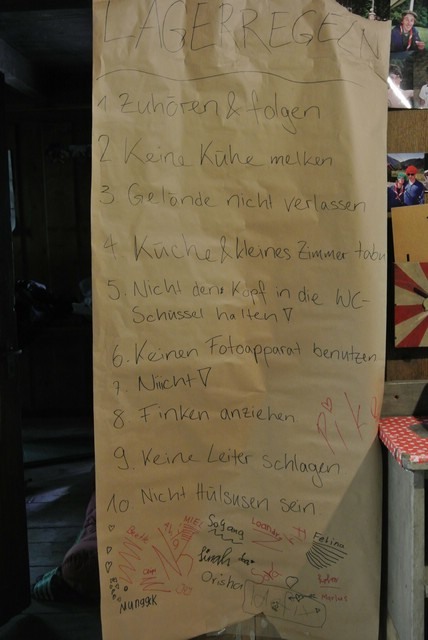 LAGERREGELN
1 Zuhören & folgen
2 Keine Kühe melken
3 Gelände nicht verlassen
4 Küche & kleines Zimmer tabu
5. Nicht den Kopf in die WC-
Schüssel halten!
6. Keinen Fotoapparat benutzen
7. Niiicht!
8 Finken anziehen
9. Keine Leiter schlagen
10 Nicht Hülsusen sein
Piku
MIEL
Sogang
Felina
Orisha
Nunggk